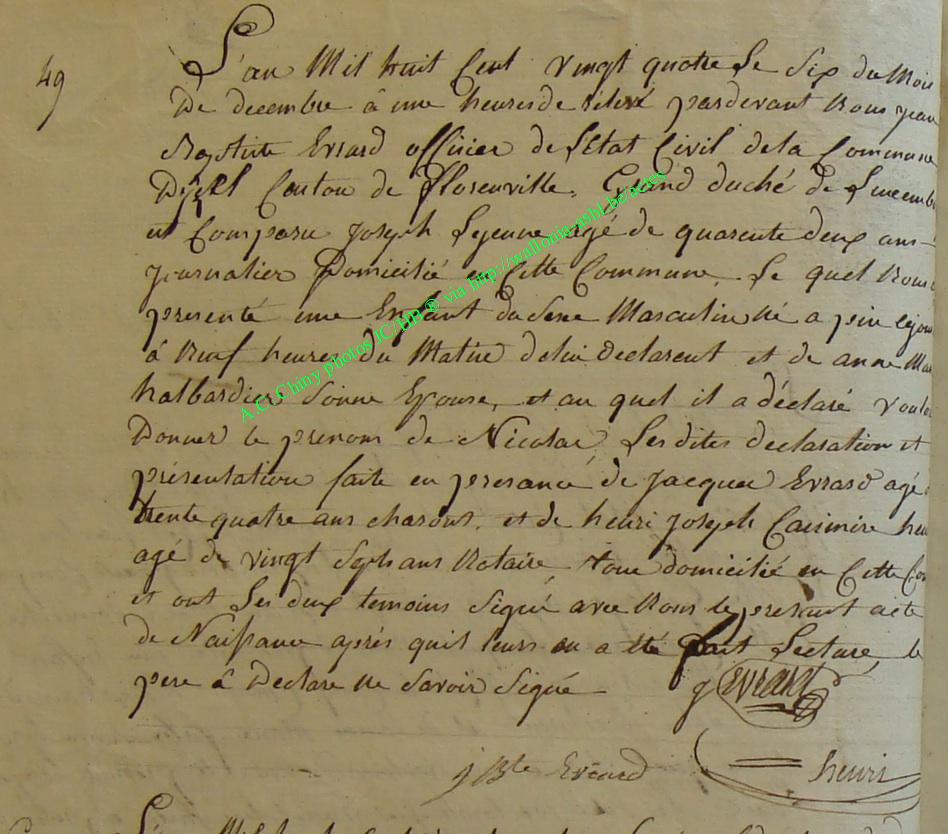 49
L'an Mil huit Cent vingt quatre Le Six du Mois
De decembre à une heures de relevé pardevant Nous jean
Baptiste Evrard officier de L'Etat Civil de la Commune
Canton de florenville, Grand duché de Luxemb
est Comparu Joseph Lejeune agé de quarente deux ans
journalier Domicilié en Cette Commune. Le quel Nous
presenté une Enfant du Sexe Masculin Né a
à Neuf heures du Matin de lui declarent et de anne Mar
halbardier Sonne Epouse, et au quel il a déclaré Voulo
Donner le prenom de Nicolas, Les dites declaration et
présentation faite en presance de Jacques Evrard agé
trente quatre ans charons, et de henri Joseph Casimire hen
agé de vingt Sept ans Notaire tous domicilié en Cette Co
et ont Les deux temoins Signé avec Nous le present acte
de Naissance après quil leurs en a été fait Lecture, le
pere à Déclaré Ne Savoir Signé
J Evrard
henri
J Bte Evrard
A.C. Chiny photos JC/HB ® via http://wallonia-asbl.be/actes